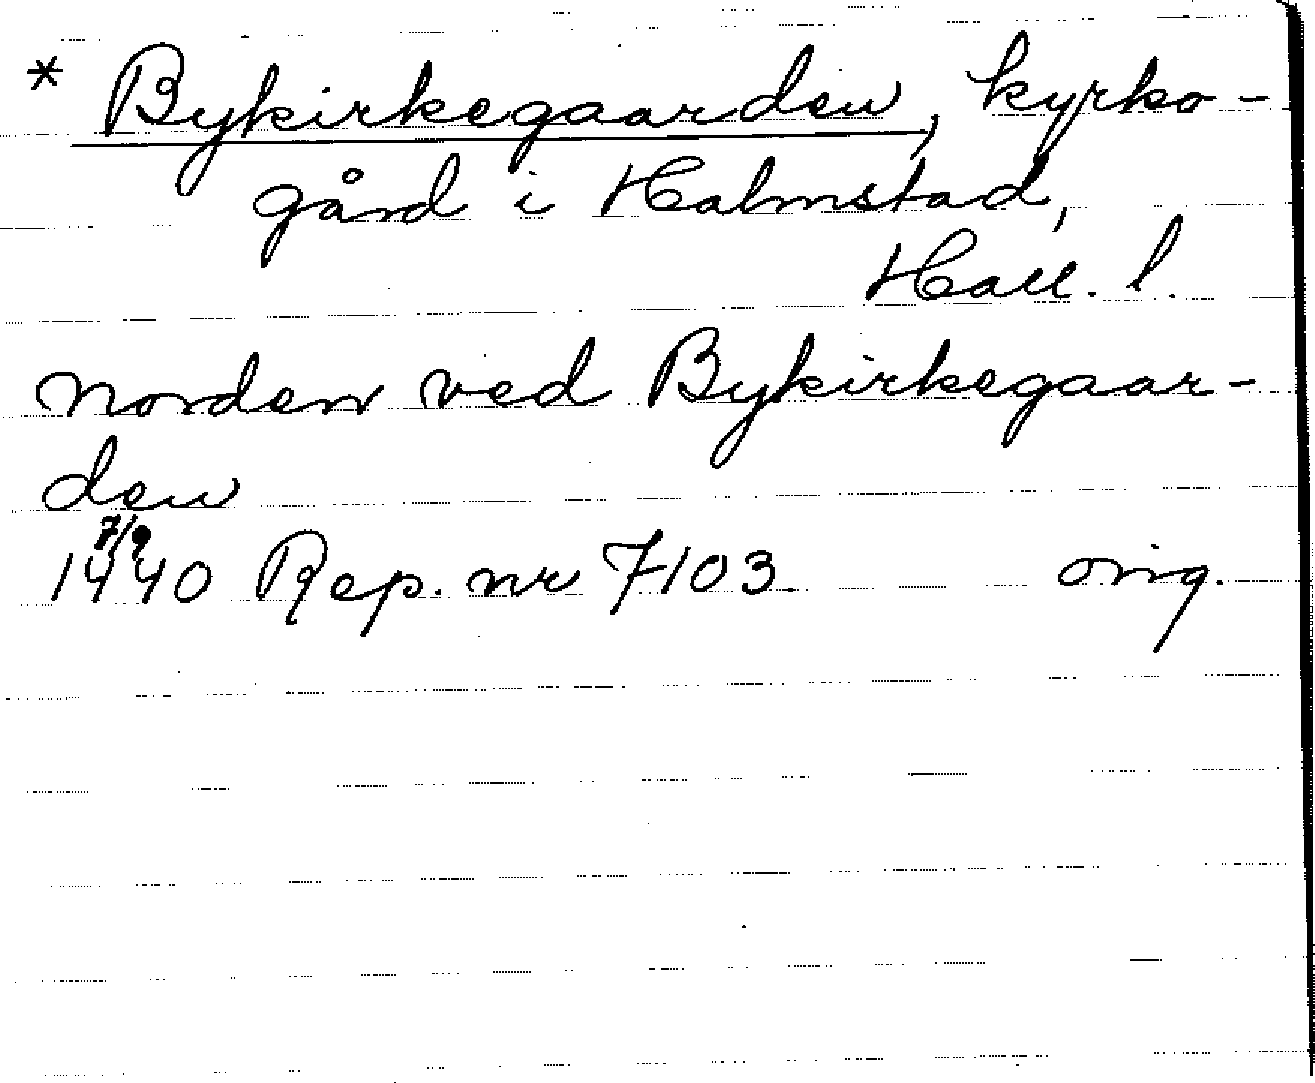 * Bykirkegaarden, kyrko-
gård i Halmstad,
Hall. l.
norden ved Bykirkegaar-
den
7/9
1440 Rep. nr 7103 orig.